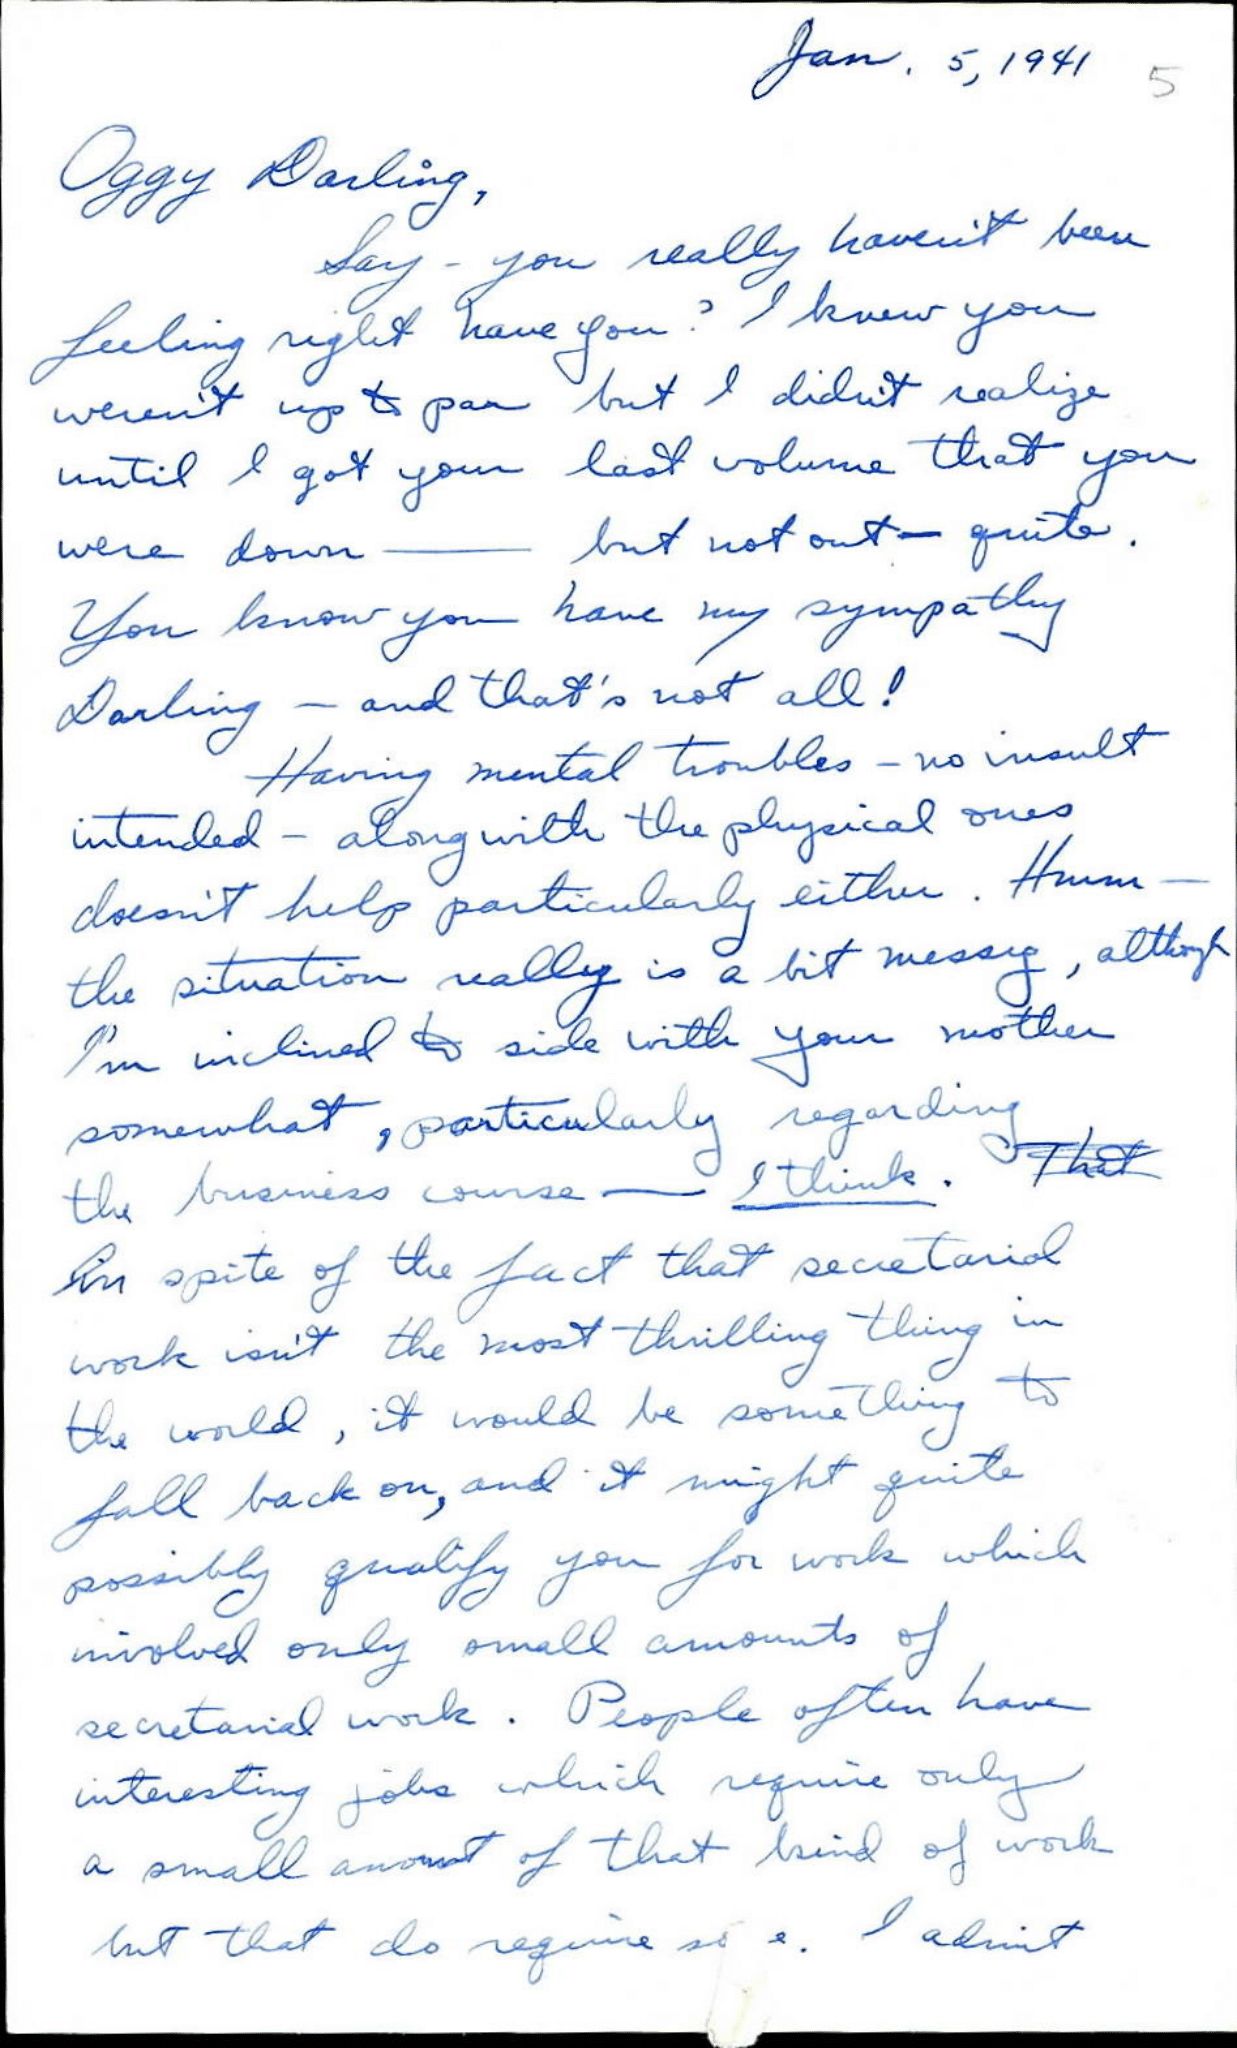 Jan. 5, 1941 5
Oggy Darling,
Say - you really haven't been
feeling right have you? I knew you
weren't up to par but I didn't realize
until I got your last volume that you
were down — but not out — quite.
You know you have my sympathy
Darling — and that's not all!
Having mental troubles - no insult
intended - along with the physical ones
doesn't help particularly either. Hmm —
the situation really is a bit messy, although
I'm inclined to side with your mother
somewhat, particularly regarding
the business course — I think. That
In spite of the fact that secretarial
work isn't the most thrilling thing in
the world, it would be something to
fall back on, and it might quite
possibly qualify you for work which
involved only small amounts of
secretarial work. People often have
interesting jobs which require only
a small amount of that kind of work
but that do require so e. I admit